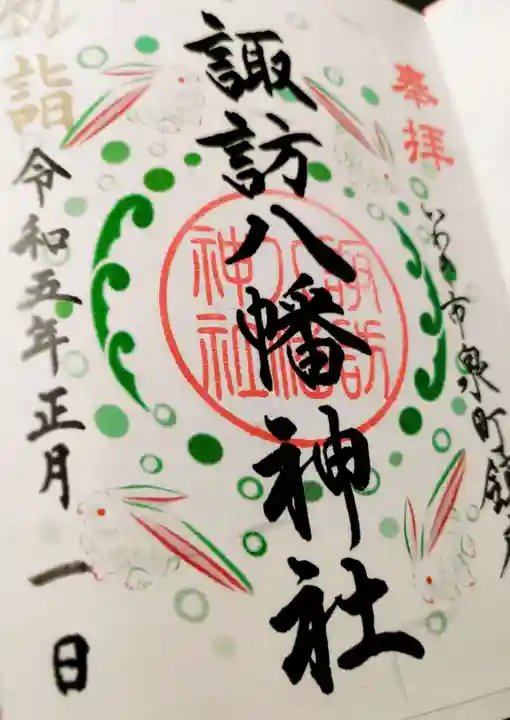 奉拝
いわき市泉町鎮守
諏訪八幡神社
諏訪八幡神社
令和五年正月一日
初詣